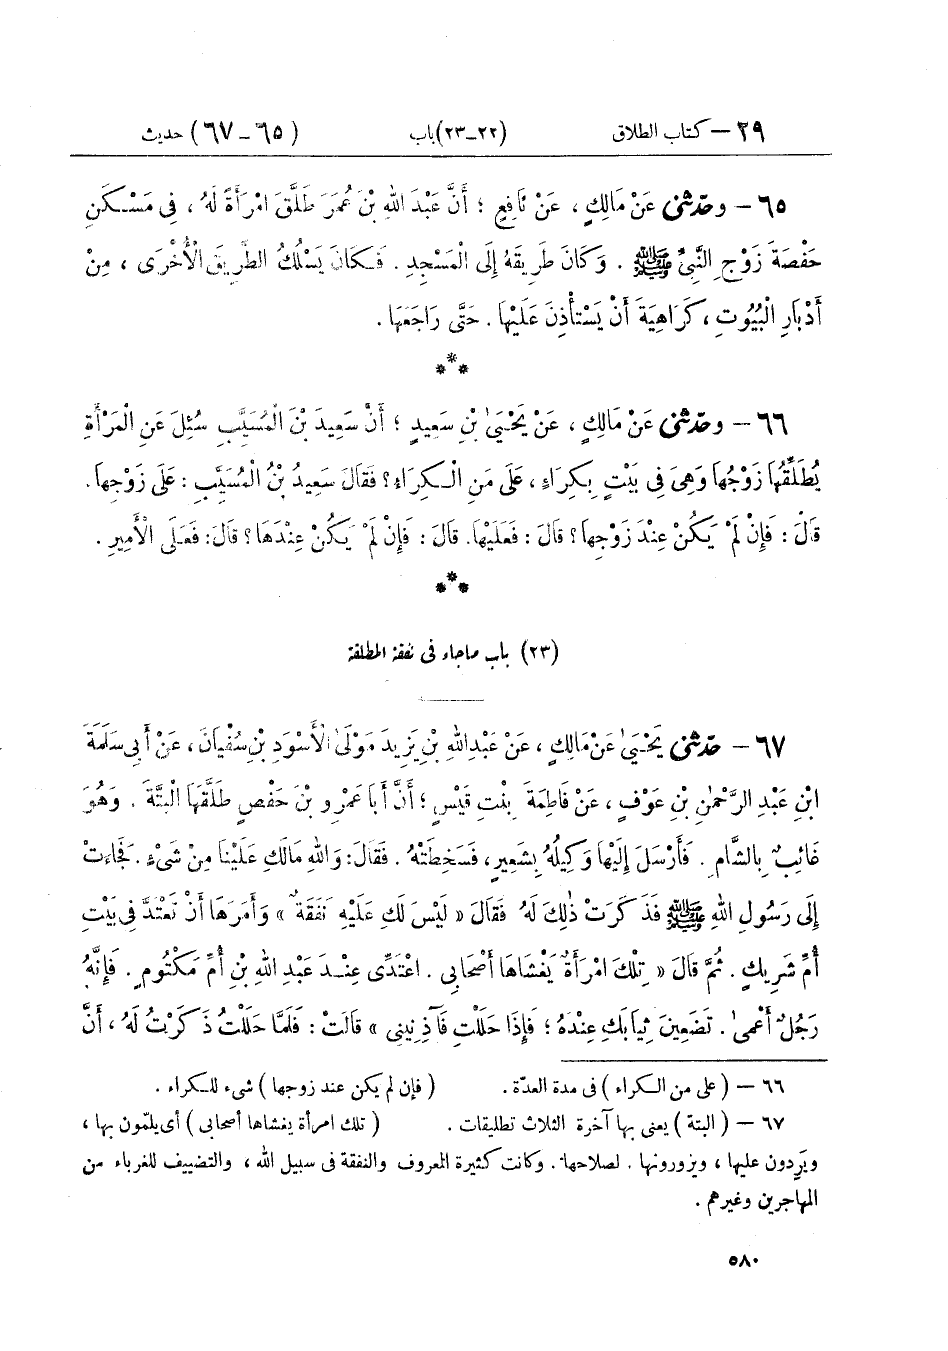 ٢٩ – كتاب الطلاق (٢٢–٢٣) باب (٦٥–٦٧) حديث
٦٥ – وحدّثنى عَنْ مَالِكٍ ، عَنْ نَافِعٍ ؛ أَنَّ عَبْدَ اللهِ بْنَ عُمَرَ طَلَّقَ امْرَأَةً لَهُ ، فِى مَسْكَنِ
حَفْصَةَ زَوْجِ النَّبِىِّ ﷺ . وَكَانَ طَرِيقَهُ إِلَى الْمَسْجِدِ . فَكَانَ يَسْلُكُ الطَّرِيقَ الْأُخْرَى ، مِنْ
أَدْبَارِ الْبُيُوتِ ، كَرَاهِيَةَ أَنْ يَسْتَأْذِنَ عَلَيْهَا . حَتَّى رَاجَعَهَا .
***
٦٦ – وحدّثنى عَنْ مَالِكٍ ، عَنْ يَحْيَىٰ بْنِ سَعِيدٍ ؛ أَنَّ سَعِيدَ بْنَ الْمُسَيَّبِ سُئِلَ عَنِ الْمَرْأَةِ
يُطَلِّقُهَا زَوْجُهَا وَهِىَ فِى بَيْتٍ بِكِرَاءٍ ، عَلَى مَنِ الْكِرَاءُ ؟ فَقَالَ سَعِيدُ بْنُ الْمُسَيَّبِ : عَلَى زَوْجِهَا .
قَالَ : فَإِنْ لَمْ يَكُنْ عِنْدَ زَوْجِهَا ؟ قَالَ : فَعَلَيْهَا . قَالَ : فَإِنْ لَمْ يَكُنْ عِنْدَهَا ؟ قَالَ : فَعَلَى الْأَمِيرِ .
***
(٢٣) باب ماجاء فى نفقة المطلقة
٦٧ – حدّثنى يَحْيَىٰ عَنْ مَالِكٍ ، عَنْ عَبْدِ اللهِ بْنِ يَزِيدَ مَوْلَىٰ الْأَسْوَدِ بْنِ سُفْيَانَ ، عَنْ أَبِى سَلَمَةَ
ابْنِ عَبْدِ الرَّحْمٰنِ بْنِ عَوْفٍ ، عَنْ فَاطِمَةَ بِنْتِ قَيْسٍ ؛ أَنَّ أَبَا عَمْرِو بْنَ حَفْصٍ طَلَّقَهَا الْبَتَّةَ . وَهُوَ
غَائِبٌ بِالشَّامِ . فَأَرْسَلَ إِلَيْهَا وَكِيلُهُ بِشَعِيرٍ ، فَسَخِطَتْهُ . فَقَالَ : وَاللهِ مَالَكِ عَلَيْنَا مِنْ شَىْءٍ . فَجَاءَتْ
إِلَى رَسُولِ اللهِ ﷺ فَذَكَرَتْ ذٰلِكَ لَهُ فَقَالَ « لَيْسَ لَكِ عَلَيْهِ نَفَقَةٌ » وَأَمَرَهَا أَنْ تَعْتَدَّ فِى بَيْتِ
أُمِّ شَرِيكٍ . ثُمَّ قَالَ « تِلْكَ امْرَأَةٌ يَغْشَاهَا أَصْحَابِى . اعْتَدِّى عِنْدَ عَبْدِ اللهِ بْنِ أُمِّ مَكْتُومٍ . فَإِنَّهُ
رَجُلٌ أَعْمىٰ . تَضَعِينَ ثِيَابَكِ عِنْدَهُ ؛ فَإِذَا حَلَلْتِ فَآذِنِينِى » قَالَتْ : فَلَمَّا حَلَلْتُ ذَكَرْتُ لَهُ ، أَنَّ
٦٦ – (على من الكراء) فى مدة العدّة . (فإن لم يكن عند زوجها) شىء للكراء .
٦٧ – (البتة) يعنى بها آخرة الثلاث تطليقات . (تلك امرأة يغشاها أصحابى) أى يلمّون بها ،
ويَردون عليها ، ويزورونها . لصلاحها . وكانت كثيرة المعروف والنفقة فى سبيل الله ، والتضييف للغرباء من
المهاجرين وغيرهم .
٥٨٠